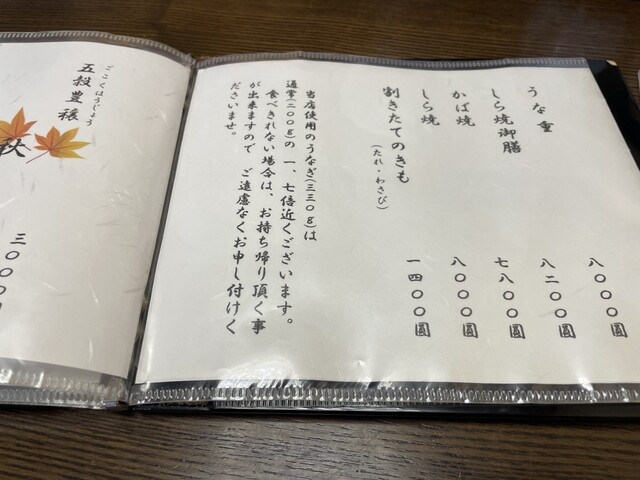 うな重 八〇〇〇圓
しら焼御膳 八二〇〇圓
かば焼 七八〇〇圓
しら焼 八〇〇〇圓
割きたてのきも 一四〇〇圓
(たれ・わさび)
当店使用のうなぎ(三三〇g)は
通常(二〇〇g)の 一、七倍近くございます。
食べきれない場合は、お持ち帰り頂く事
が出来ますので ご遠慮なくお申し付けく
ださいませ。
ごこくほうじょう
五穀豊穣
秋
三〇〇〇圓